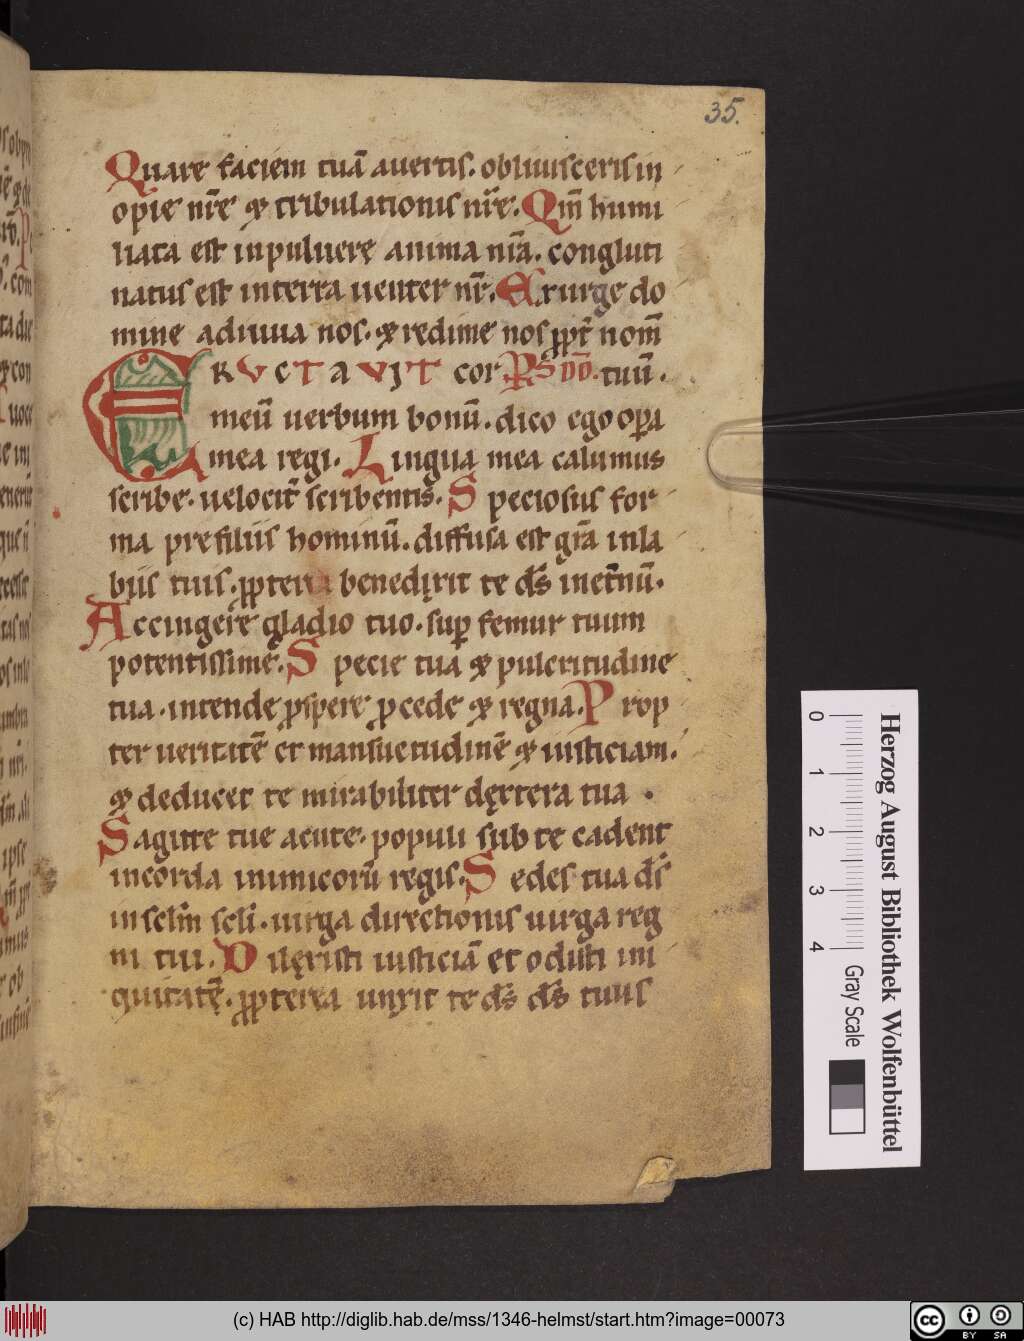 35.
Quare faciem tuā auertis. obliuisceris in
opie nr̄e & tribulationis nr̄e. Qm̄ humi
liata est in puluerę anima nr̄a. congluti
natus est in terra uenter nr̄. Exurge do
mine adiuua nos. & redime nos ꝓpt̄ nom̄
ERVCTAVIT cor PS DD. tuū.
meū uerbum bonū. dico ego opa
mea regi. Lingua mea calamus
scribe. uelocit̄ scribentis. Speciosus for
ma pre filiis hominū. diffusa est gr̄a in la
biis tuis. ꝓpterea benedixit te ds̄ in et̄nū.
Accingere gladio tuo. sup femur tuum
potentissime. Specie tua & pulcritudine
tua. intende ꝓspere ꝓcede & regna. Prop
ter ueritatē et mansuetudinē & iusticiam.
& deducet te mirabiliter dęxtera tua .
Sagitte tue acute. populi sub te cadent
in corda inimicorū regis. Sedes tua ds̄
in sclm̄ scli. uirga directionis uirga reg
ni tui. Dilęxisti iusticiā et odisti ini
quitatē. ꝓpterea unxit te ds̄ ds̄ tuus
Herzog August Bibliothek Wolfenbüttel
0 1 2 3 4 Gray Scale
(c) HAB http://diglib.hab.de/mss/1346-helmst/start.htm?image=00073
cc BY SA